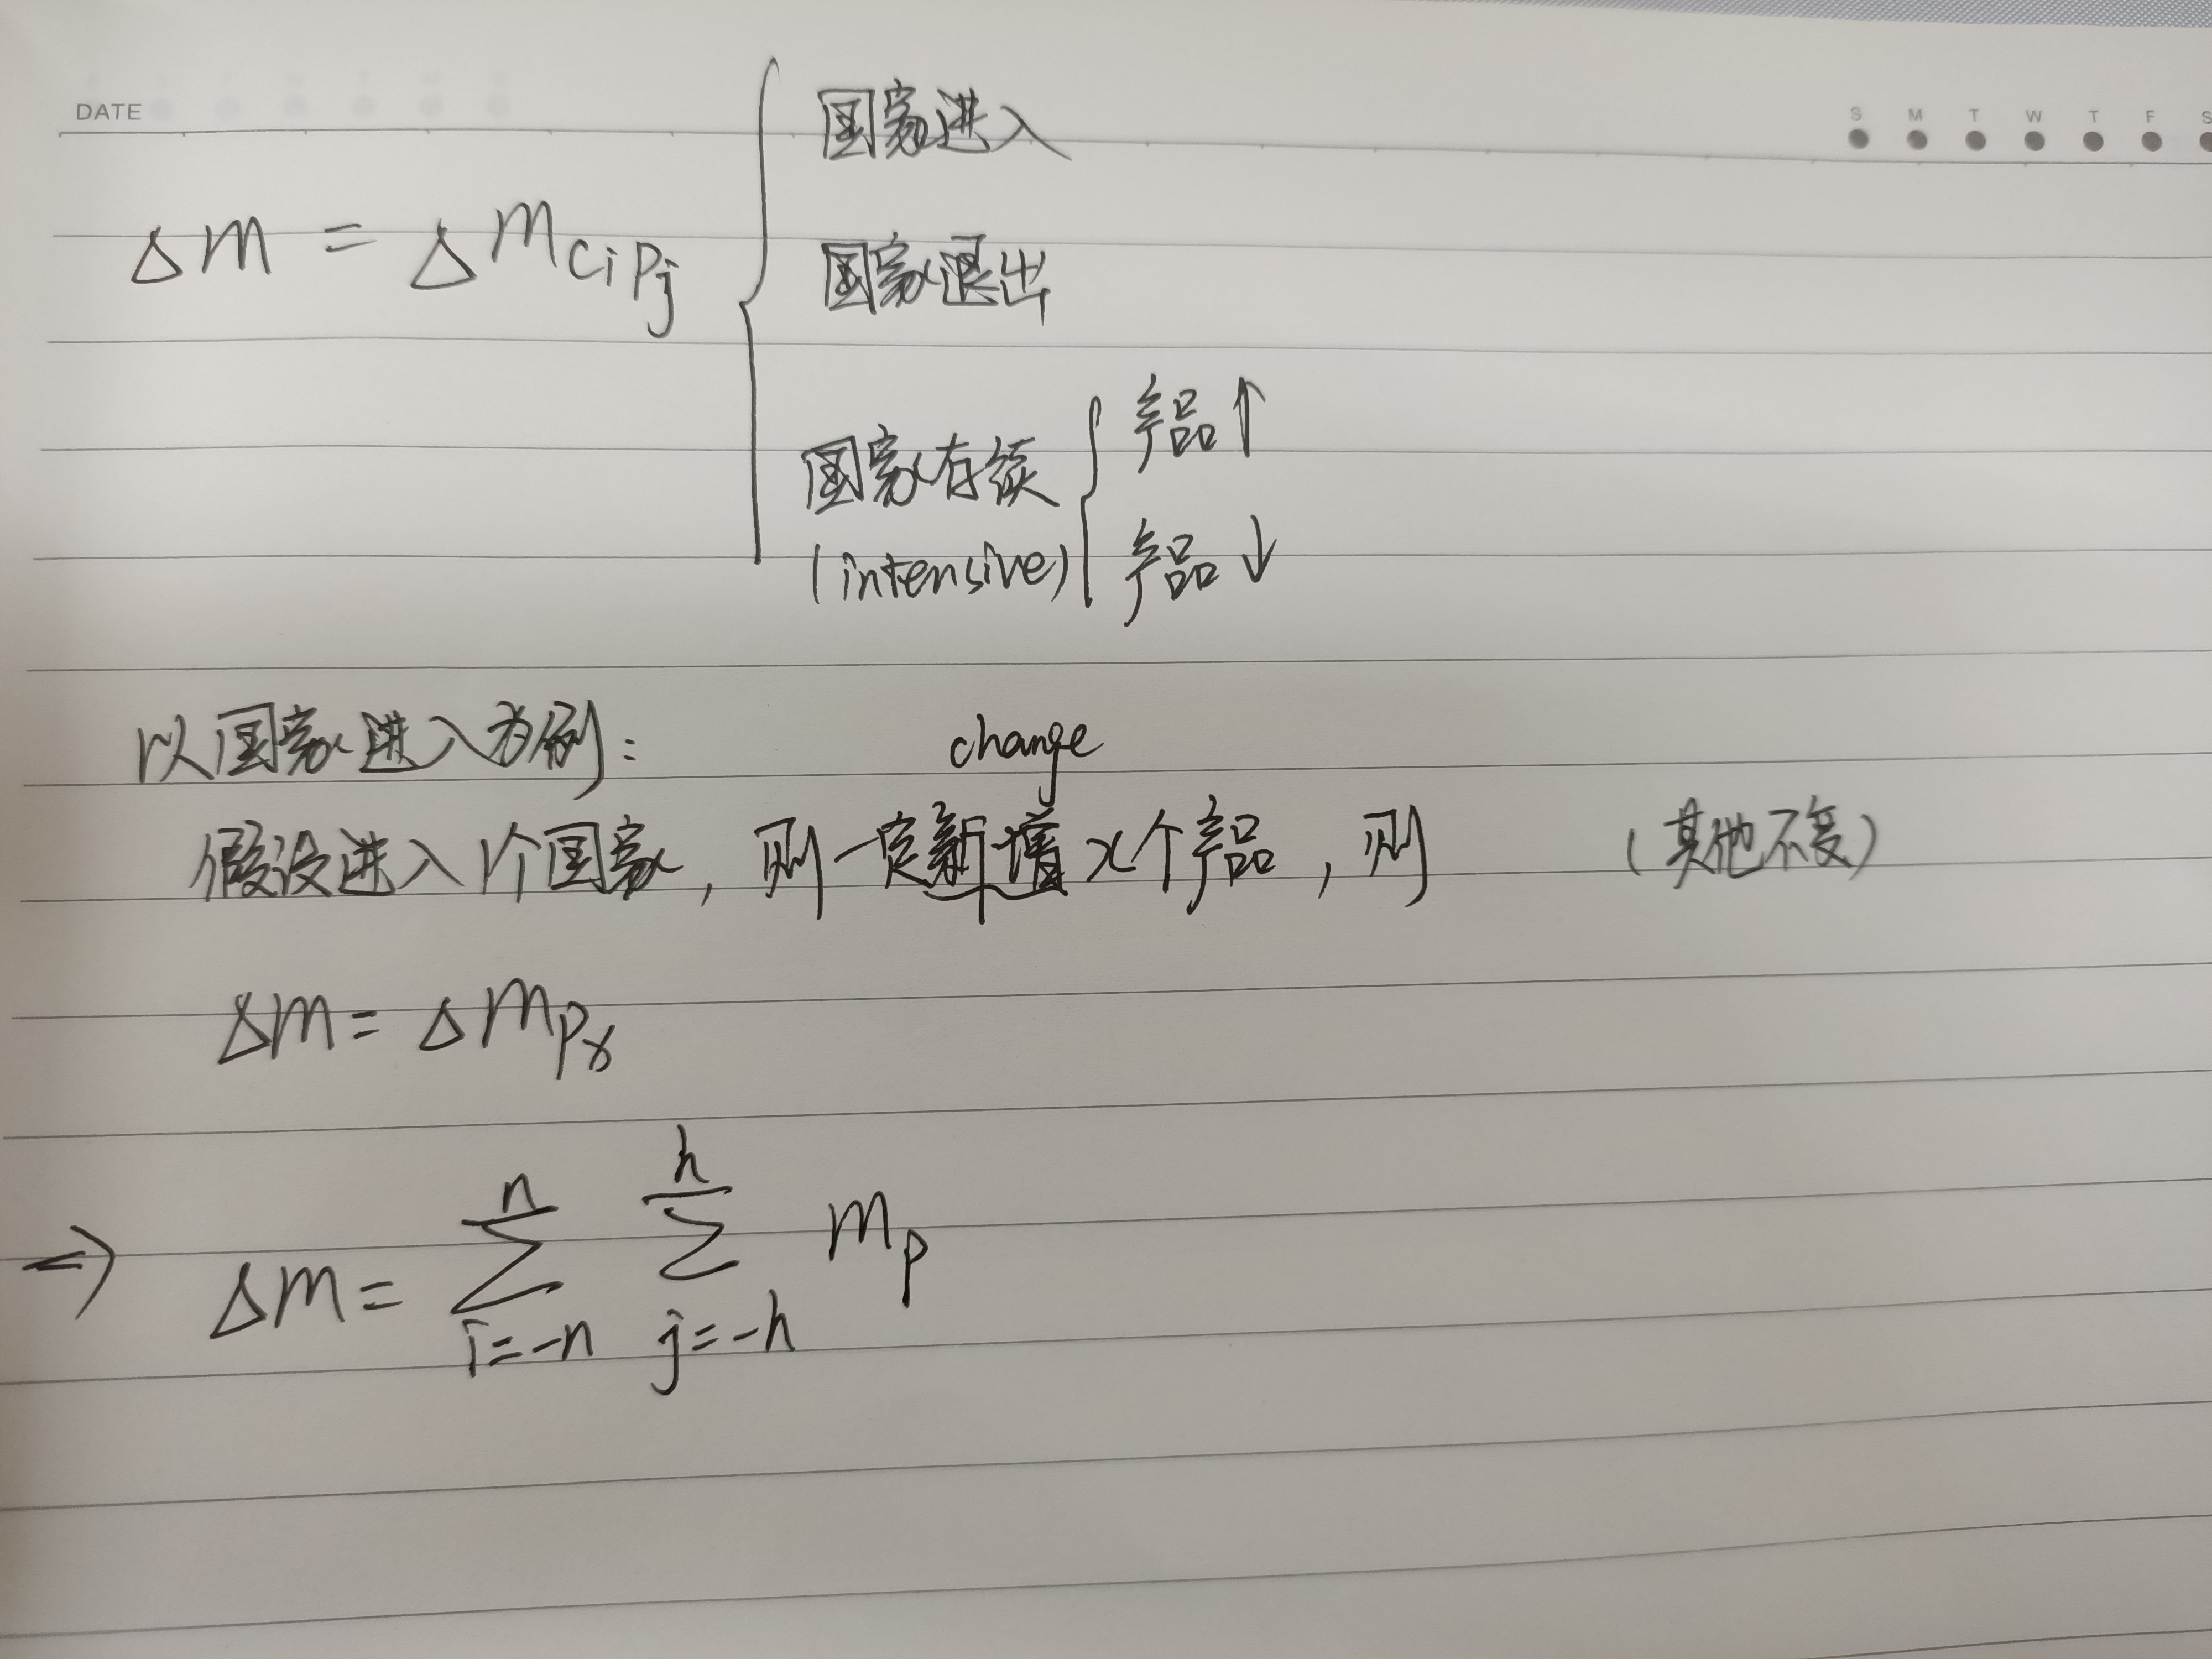 DATE
S M T W T F S
国家进入
Δm = Δm_{cipj}
国家退出
国家存续
(intensive)
产品↑
产品↓
以国家进入为例:
change
假设进入1个国家,则一定新增x个产品,则 (其他不变)
Δm = Δm_{px}
⇒ Δm = \sum_{i=-n}^{n} \sum_{j=-h}^{h} m_p